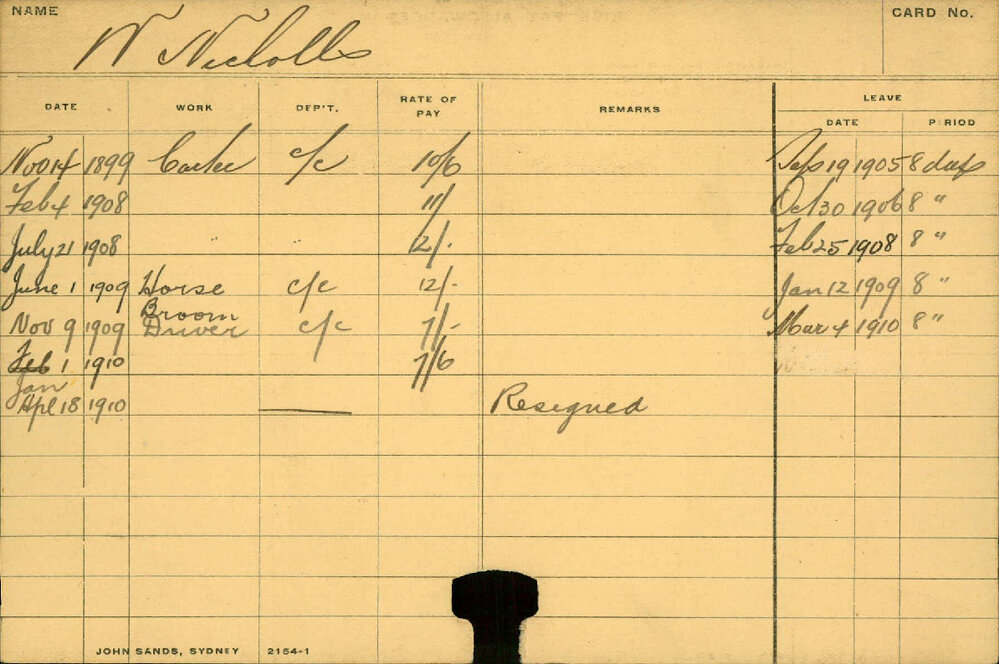 NAME
W Nicholls
CARD No.
DATE WORK DEP'T. RATE OF PAY REMARKS LEAVE
DATE PERIOD
Nov 14 1899 Carter c/c 10/6 Sep 19 1905 8 days
Feb 4 1908 11/ Oct 30 1906 8 "
July 21 1908 " 12/- Feb 25 1908 8 "
June 1 1909 Horse c/c 12/- Jan 12 1909 8 "
Broom
Nov 9 1909 Driver c/c 7/- Mar 4 1910 8 "
Feb 1 1910 7/6
Jan
Apl 18 1910 Resigned
JOHN SANDS, SYDNEY 2154-1